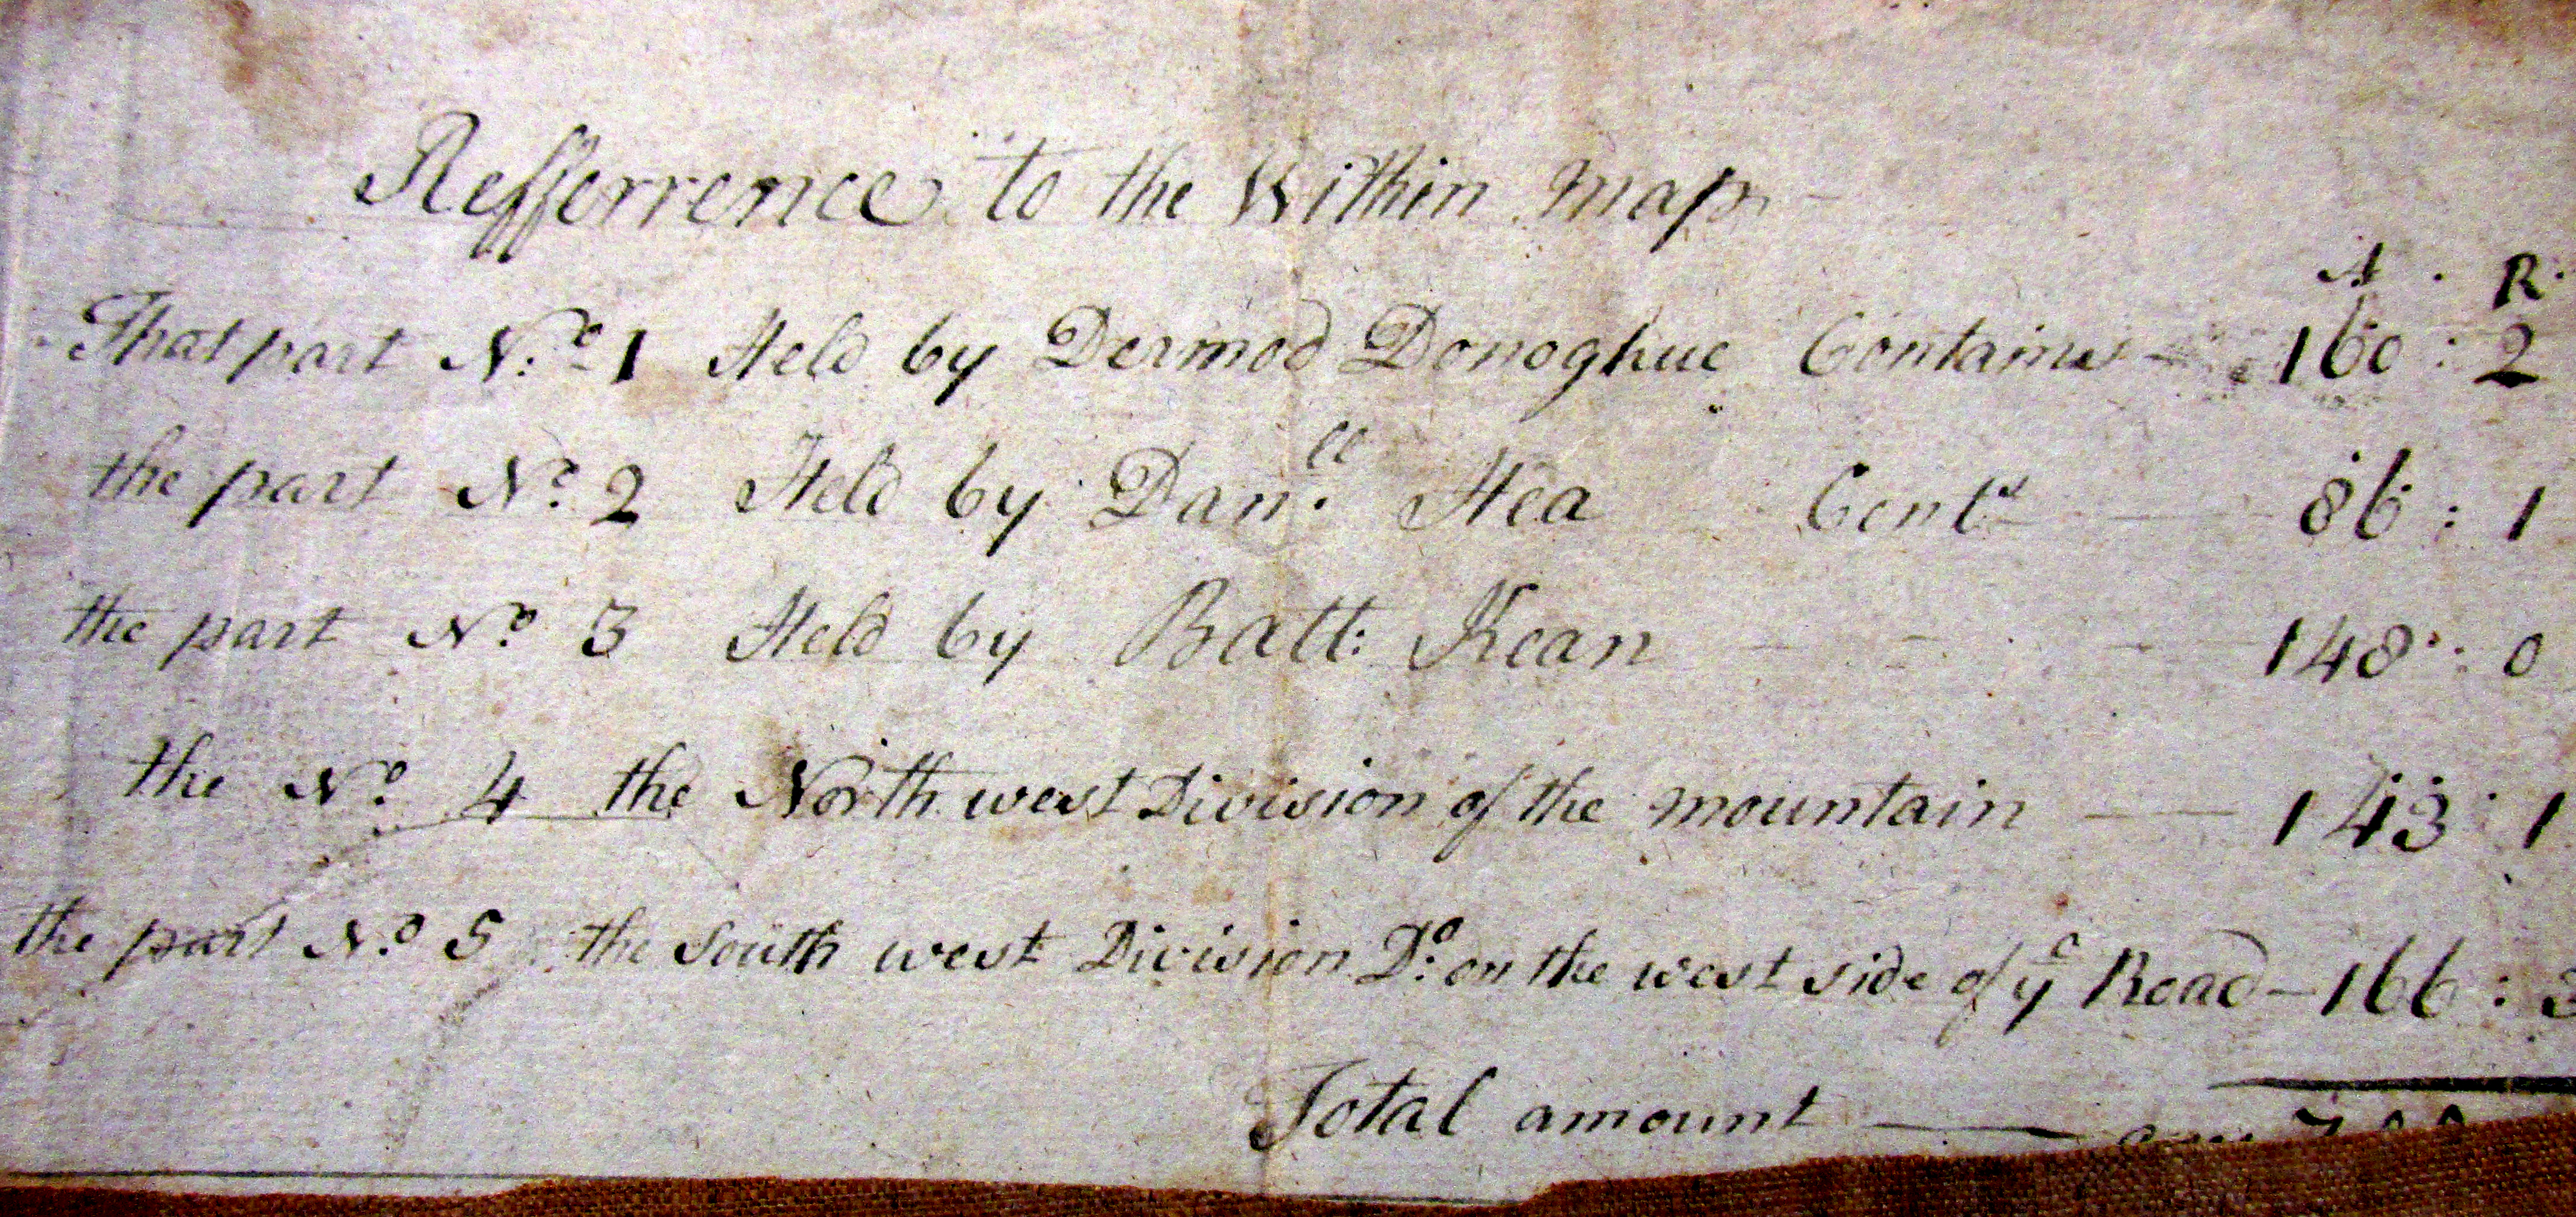 Refferrence to the Within map
A . R.
That part No. 1 Held by Dermod Donoghue Contains - 160 : 2
the part No. 2 Held by Danll. Hea Conts — 86 : 1
the part No. 3 Held by Batt: Kean - - - 148 : 0
the No. 4 the North west Division of the mountain — 143 : 1
the part No. 5 the South west Division Do. on the west side of ye Road - 166 : 3
Total amount —